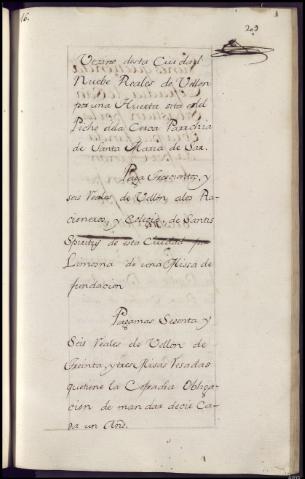 16.
203
Vezino desta Ciudad
Nuebe Reales de Vellon
por una Huerta sita en el
Picho dela Cerca Parrochia
de Santa Maria de Sar.
Paga trescientos, y
seis Reales de Vellon, alos Ra
cioneros, y Colegio de Santis
Spiritus de esta Ciudad por
Limosna de una Missa de
fundacion
Pagamas Sesenta y
Seis Reales de Vellon de
treinta, ytres Misas Resadas
quetiene la Cofradia Obliga
cion de mandar decir Ca
da un Año.